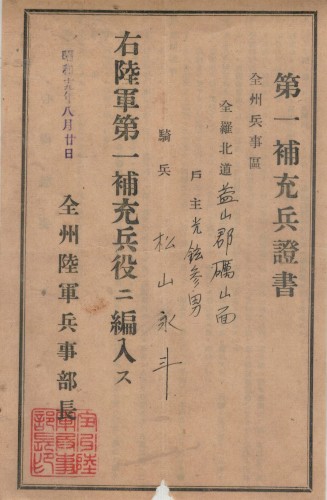 第一補充兵證書
全州兵事區
全羅北道益山郡礪山面
戶主光鉉參男
騎兵 松山永斗
右陸軍第一補充兵役ニ編入ス
昭和十九年八月廿日
全州陸軍兵事部長